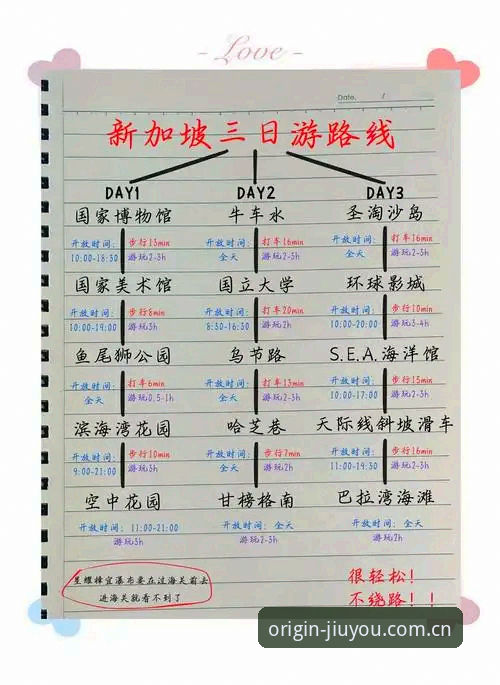 - Love -
Date. /
新加坡三日游路线
DAY1 DAY2 DAY3
国家博物馆 牛车水 圣淘沙岛
开放时间: 步行13min 开放时间: 打车16min 开放时间: 打车16min
10:00-18:30 游玩2-3h 全天 游玩2-3h 全天 游玩2-3h
国家美术馆 国立大学 环球影城
开放时间: 步行8min 开放时间: 打车20min 开放时间: 步行10min
10:00-19:00 游玩3h 8:30-16:30 游玩2h 10:00-20:00 游玩3-4h
鱼尾狮公园 乌节路 S.E.A.海洋馆
开放时间: 打车6min 开放时间: 打车13min 开放时间: 步行15min
全天 游玩0.5-1h 全天 游玩2-3h 10:00-17:00 游玩2-3h
滨海湾花园 哈芝巷 天际线斜坡滑车
开放时间: 步行10min 开放时间: 步行7min 开放时间: 步行16min
9:00-21:00 游玩3h 全天 游玩2h 11:00-19:30 游玩2-3h
空中花园 甘榜格南 巴拉湾海滩
开放时间: 11:00-21:00 开放时间: 全天 开放时间: 全天
游玩3h 游玩2-3h 游玩2h
星耀樟宜瀑布要在过海关前去
进海关就看不到了
很轻松!
不绕路!!
origin-jiuyou.com.cn